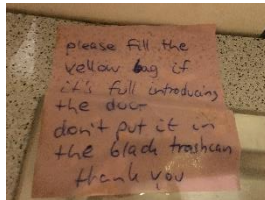 please fill the
yellow bag if
it's full introducing
the door
don't put it in
the black trashcan
thank you